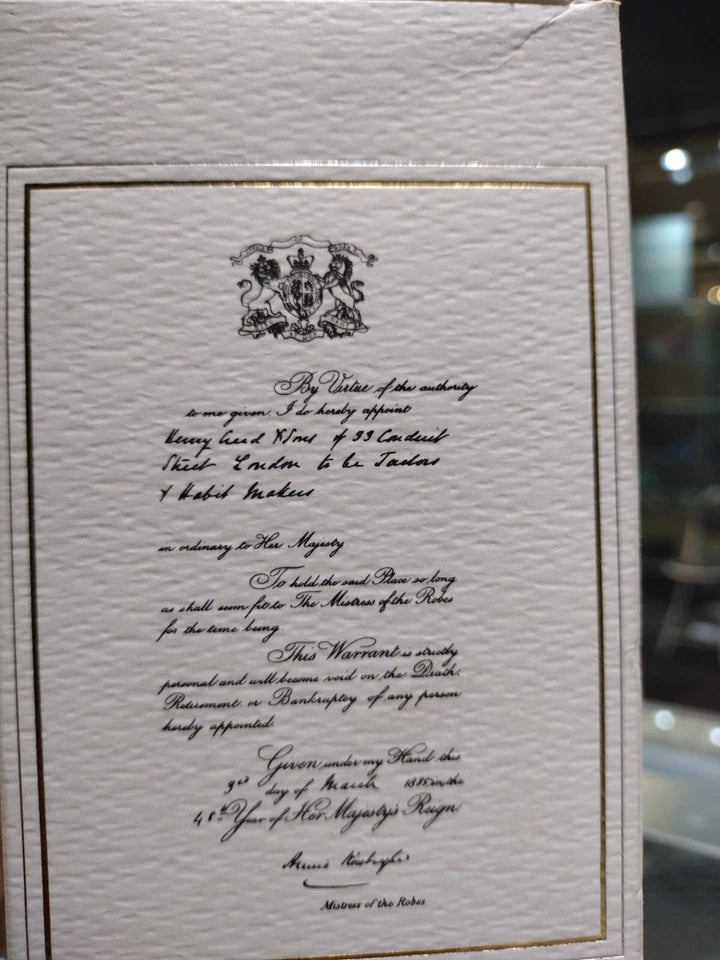 By Virtue of the authority
to me given. I do hereby appoint
Henry Creed & Sons of 33 Conduit
Street London to be Tailors
& Habit Makers
in ordinary to Her Majesty
To hold the said Place so long
as shall seem fit to The Mistress of the Robes
for the time being
This Warrant is strictly
personal and will become void on the Death.
Retirement or Bankruptcy of any person
hereby appointed.
Given under my Hand this
3rd day of March 1885 in the
48th Year of Her Majesty's Reign.
Mistress of the Robes